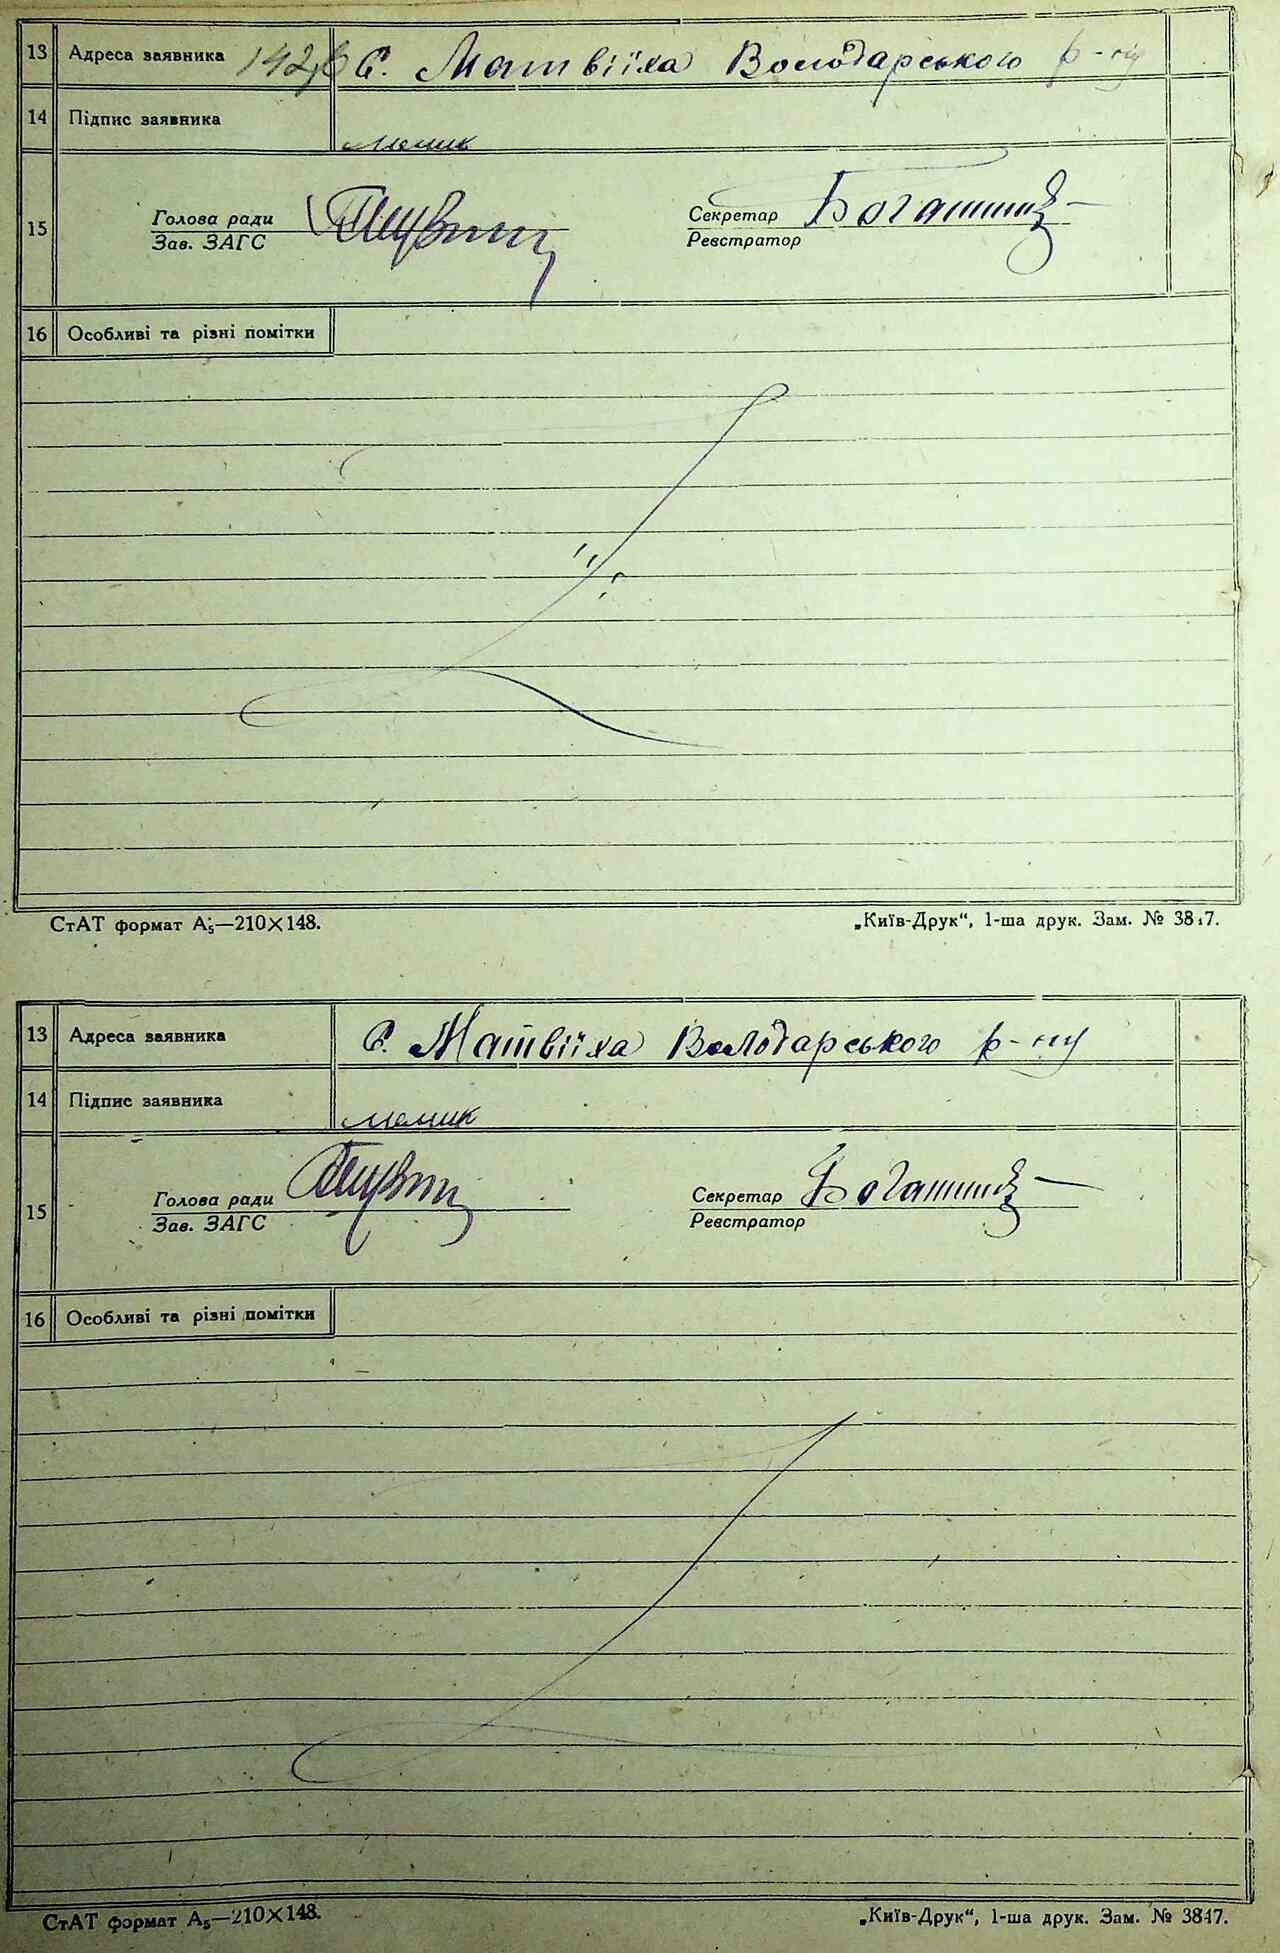 13 Адреса заявника с. Матвіїха Володарського р-ну
14 Підпис заявника
15 Голова ради Секретар
Зав. ЗАГС Реєстратор
16 Особливі та різні помітки
СтАТ формат А5—210×148. „Київ-Друк“, 1-ша друк. Зам. № 3817.
13 Адреса заявника с. Матвіїха Володарського р-ну
14 Підпис заявника
15 Голова ради Секретар
Зав. ЗАГС Реєстратор
16 Особливі та різні помітки
СтАТ формат А5—210×148. „Київ-Друк“, 1-ша друк. Зам. № 3817.